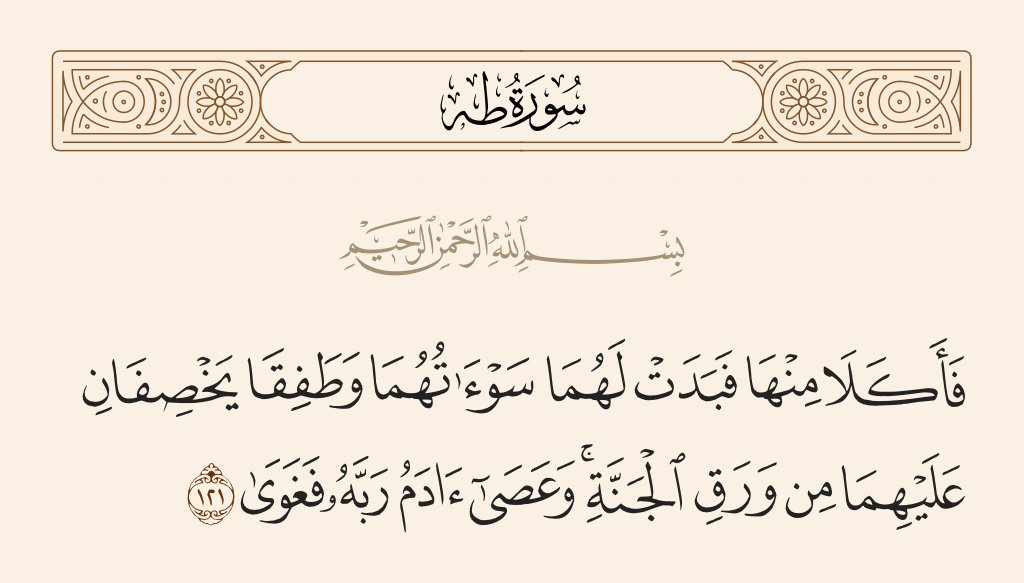 سُورَةُ طه
بِسْمِ ٱللَّهِ ٱلرَّحْمَٰنِ ٱلرَّحِيمِ
فَأَكَلَا مِنْهَا فَبَدَتْ لَهُمَا سَوْءَٰتُهُمَا وَطَفِقَا يَخْصِفَانِ
عَلَيْهِمَا مِن وَرَقِ ٱلْجَنَّةِ ۚ وَعَصَىٰٓ ءَادَمُ رَبَّهُۥ فَغَوَىٰ ١٢١